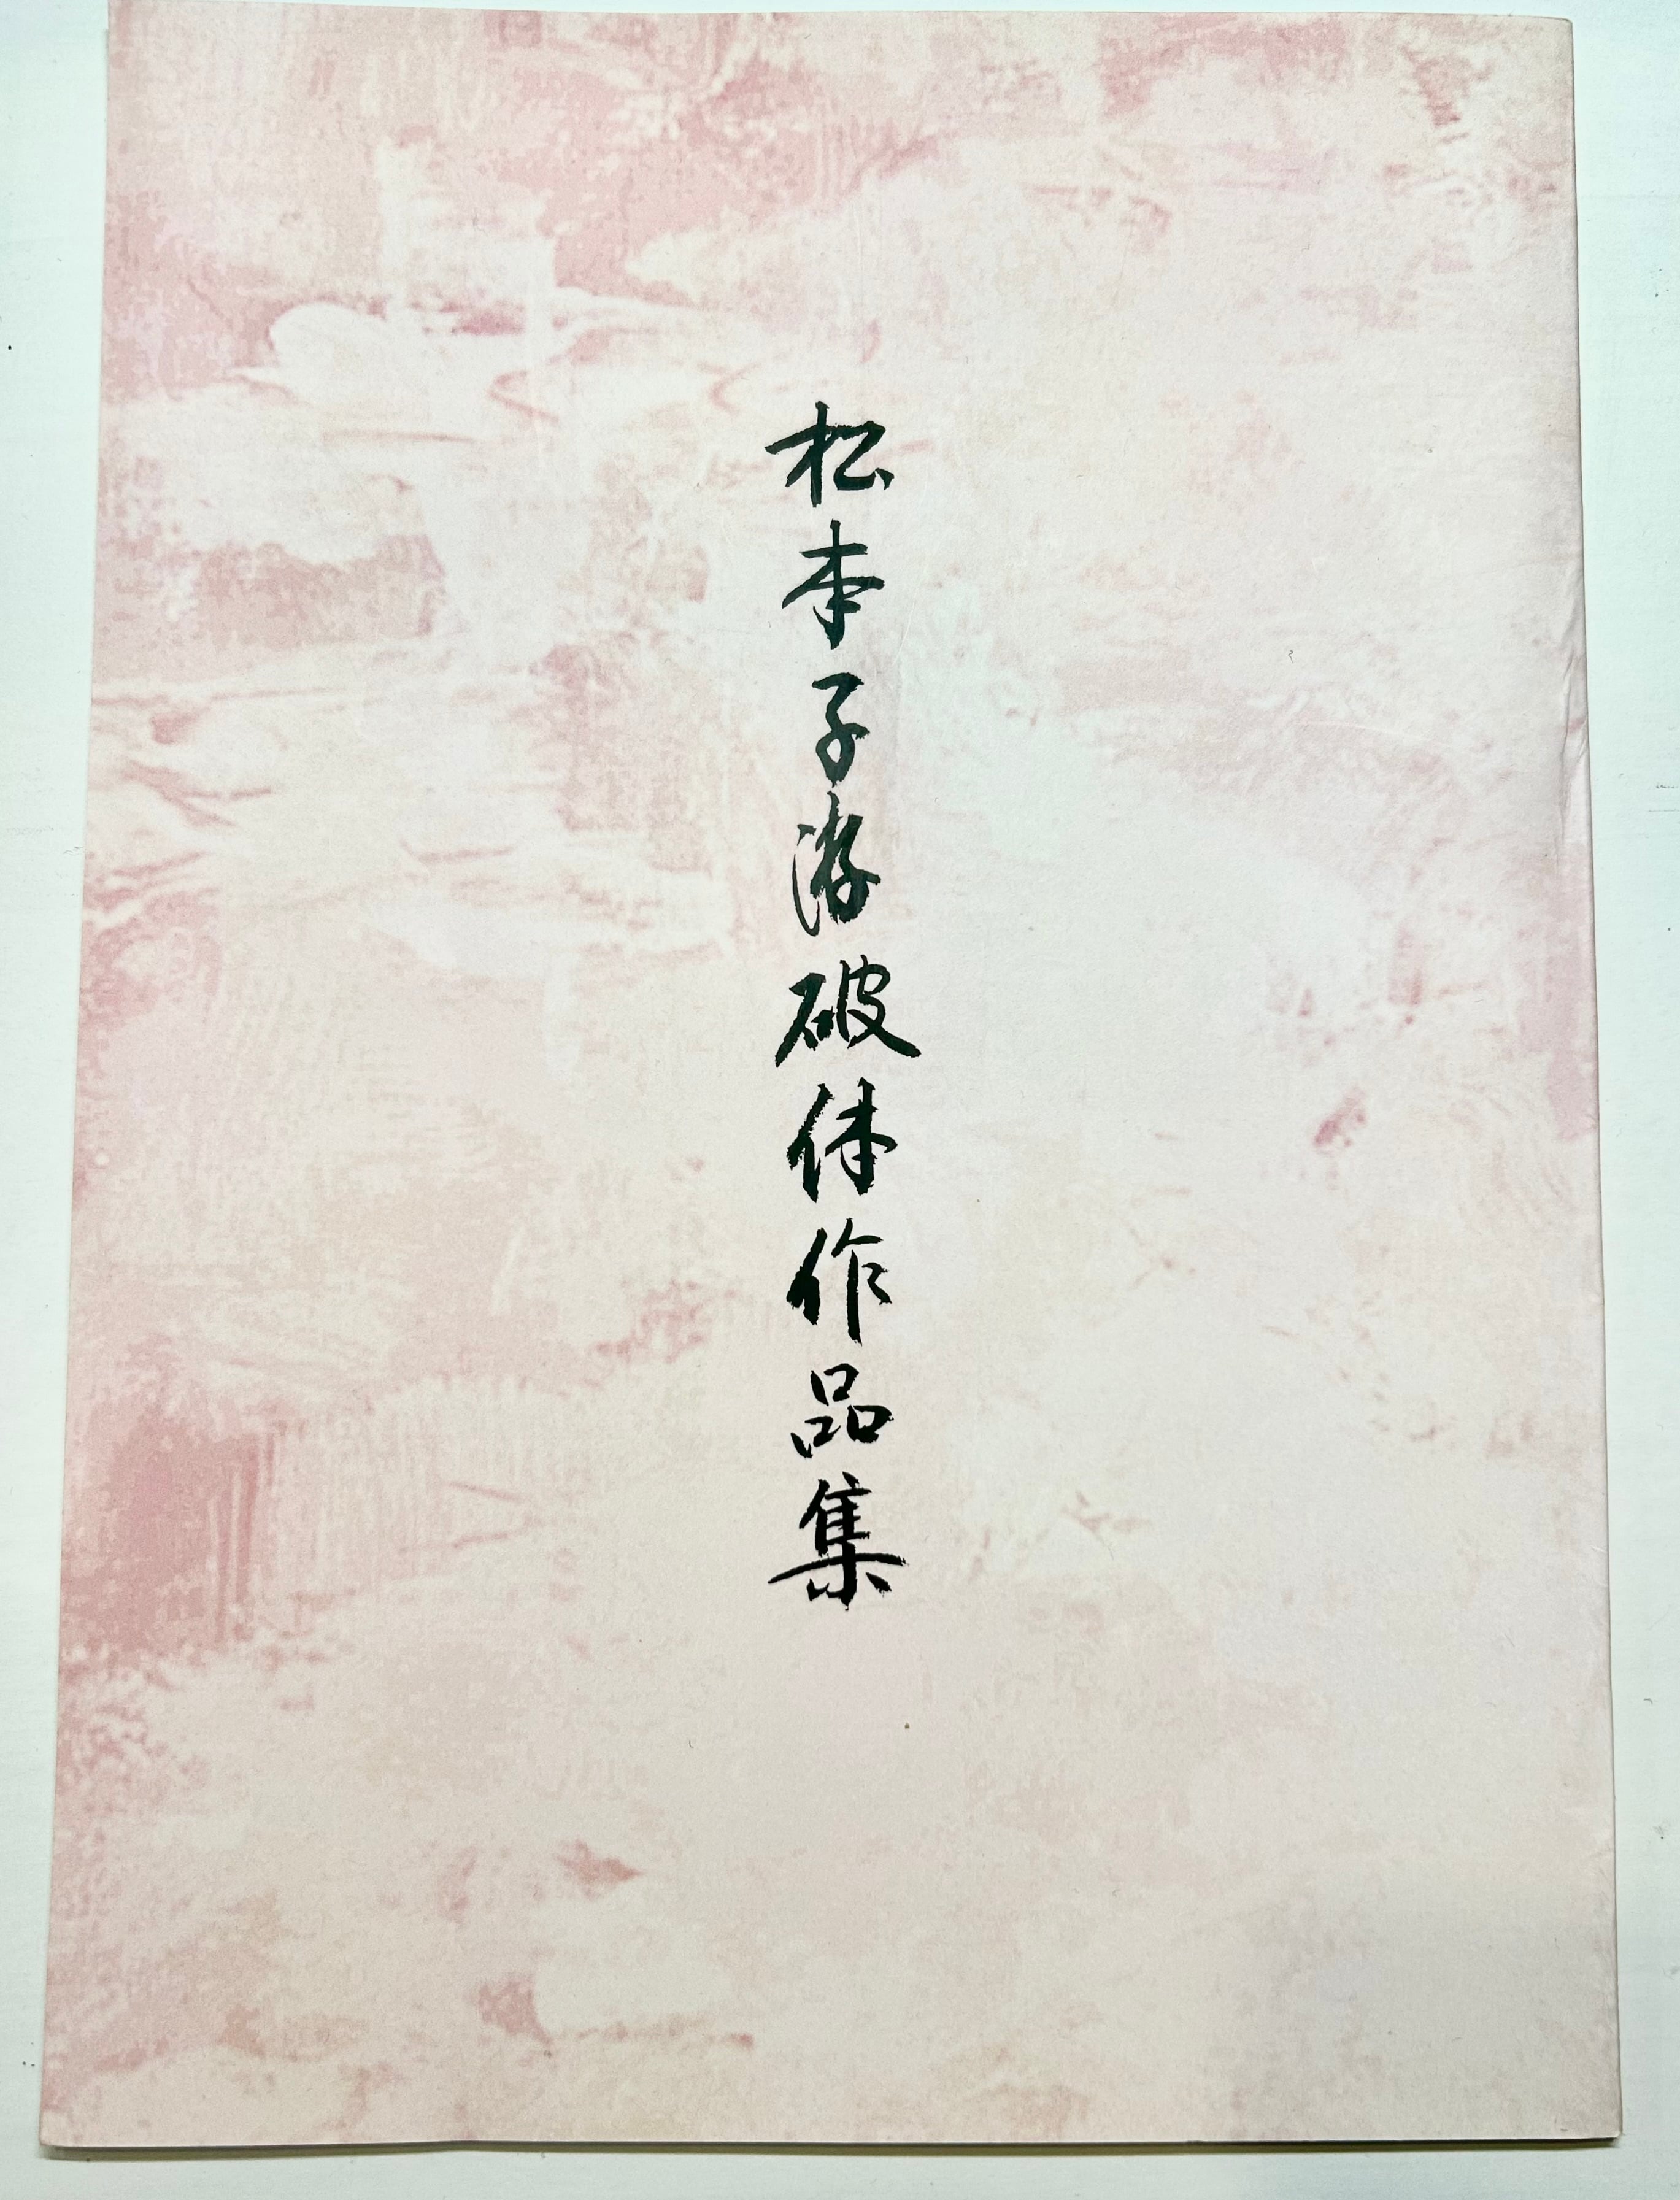 松本子游破体作品集